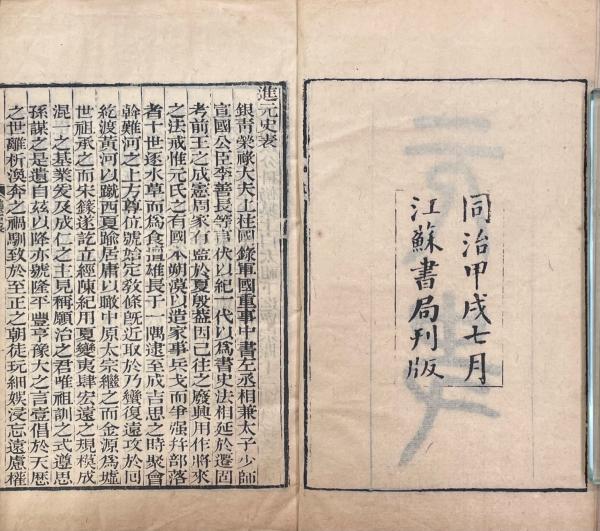 同治甲戌七月
江蘇書局刊版
進元史表
銀青榮祿大夫上柱國錄軍國重事中書左丞相兼太子少師
宣國公臣李善長等言伏以紀一代以為書史法相延於遷固
考前王之成憲周家有監於夏殷蓋因已往之廢興用作將來
之法戒惟元氏之有國本朔漠以造家事兵戈而爭強并部落
者十世逐水草而為食擅雄長于一隅逮至成吉思之時聚會
斡難河之上方尊位號始定教條既近取於乃蠻復遠攻於回
紇渡黃河以蹴西夏踰居庸以瞰中原太宗繼之而金源為墟
世祖承之而宋籙遂訖立經陳紀用夏變夷肆宏遠之規模成
混一之基業爰及成仁之主見稱願治之君唯祖訓之式遵思
孫謀之是遺自茲以降亦號隆平豐亨豫大之言壹倡於天曆
之世離析渙奔之禍馴致於至正之朝徒玩細娛浸忘遠慮權